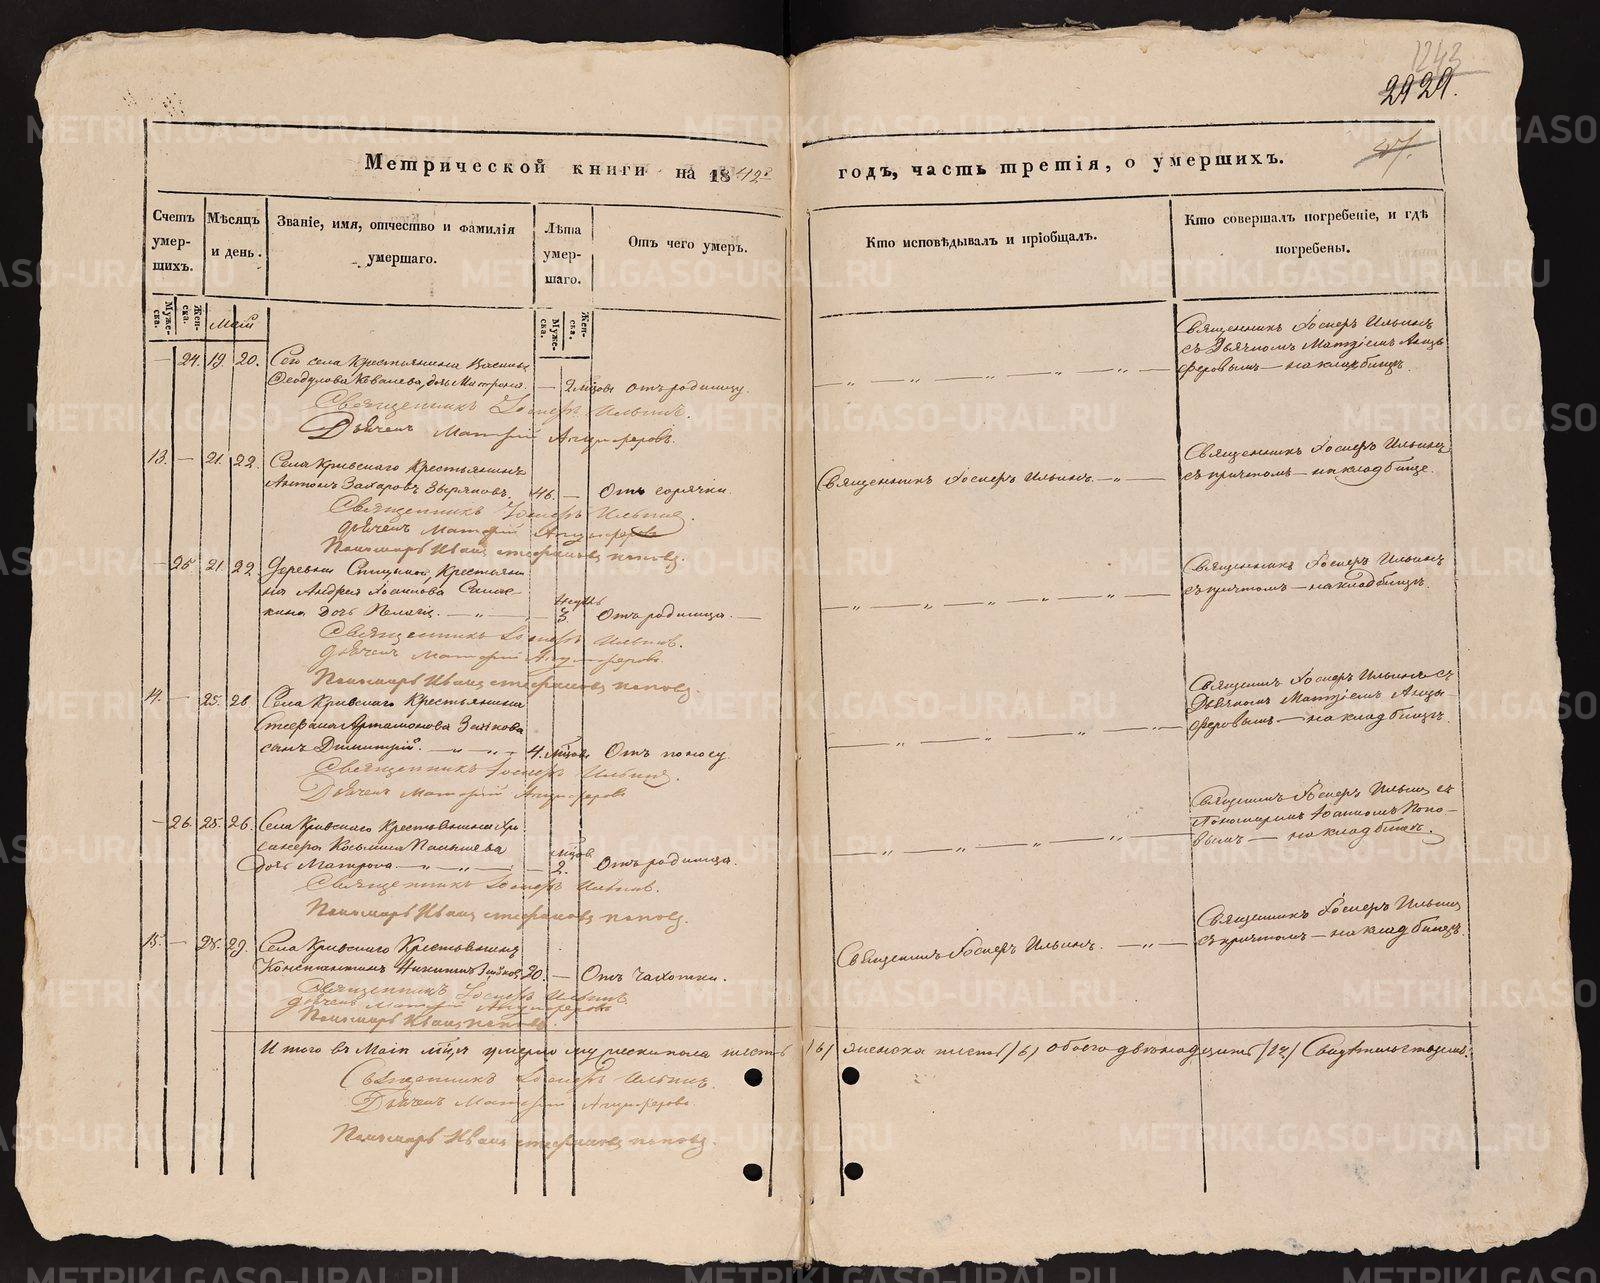 1243
29 29.
87.
Метрической книги на 1842й
годъ, часть третія, о умершихъ.
Счетъ умер-шихъ.
Мѣсяцъ и день.
Званіе, имя, отчество и фамилія умершаго.
Лѣта умер-шаго.
Отъ чего умеръ.
Кто исповѣдывалъ и пріобщалъ.
Кто совершалъ погребеніе, и гдѣ погребены.
Муже-ска.
Жен-ска.
Май
Муже-ска.
Жен-ска.
Священникъ Іосифъ Ильинъ
— 24. 19. 20. Сего села Крестьянина
съ Дьячкомъ Матфіемъ Анцы-
дочь Матрона. — 2 мѣсяцовъ отъ родимцу.
феровымъ — на кладбищѣ.
Священникъ Іосифъ Ильинъ.
Дьячекъ Матфей Анцыферовъ.
13. — 21. 22. Села Кривскаго Крестьянинъ
Антонъ Захаровъ Зыряновъ. 46. — Отъ горячки.
Священникъ Іосифъ Ильинъ. — „ —
Священникъ Іосифъ Ильинъ
съ причтомъ — на кладбище.
Священникъ Іосифъ Ильинъ.
Дьячекъ Матфей Анцыферовъ
Пономарь Иванъ Стефановъ Поповъ.
— 25 21. 22. Деревни Крестьяни
на Андрея Осипова
кина дочь Пелагія. — „ — 3 Отъ родимца. —
Священникъ Іосифъ Ильинъ
съ причтомъ — на кладбищѣ.
Священникъ Іосифъ Ильинъ.
Дьячекъ Матфей Анцыферовъ.
Пономарь Иванъ Стефановъ Поповъ.
14. — 25. 26. Села Кривскаго Крестьянина
Стефана Артамонова Зайкова
сынъ Димитрій. — „ — „ — 4. мѣсяцовъ Отъ поносу.
Священникъ Іосифъ Ильинъ съ
Дьячкомъ Матфіемъ Анцы-
феровымъ — на кладбищѣ.
Священникъ Іосифъ Ильинъ.
Дьячекъ Матфей Анцыферовъ
— 26. 25. 26. Села Кривскаго Крестьянина
Козьмина
дочь Матрона — „ — „ — мѣсяцов. 2. Отъ родимца.
Священникъ Іосифъ Ильинъ съ
Пономаремъ Іоанномъ Попо-
вымъ — на кладбищѣ.
Священникъ Іосифъ Ильинъ.
Пономарь Иванъ Стефановъ Поповъ.
15. — 28. 29. Села Кривскаго Крестьянинъ
Константинъ Никитинъ Зайковъ 20. — Отъ чахотки.
Священникъ Іосифъ Ильинъ. — „ —
Священникъ Іосифъ Ильинъ
съ причтомъ — на кладбищѣ.
Священникъ Іосифъ Ильинъ
Дьячекъ Матфей Анцыферовъ
Пономарь Иванъ Поповъ.
Итого въ Маіи мѣсяцѣ умерло мужеска пола шесть /6/ женска шесть /6/ обоего двѣнадцать /12/
Священникъ Іосифъ Ильинъ.
Дьячекъ Матфей Анцыферовъ
Пономарь Иванъ Стефановъ Поповъ.
METRIKI.GASO-URAL.RU